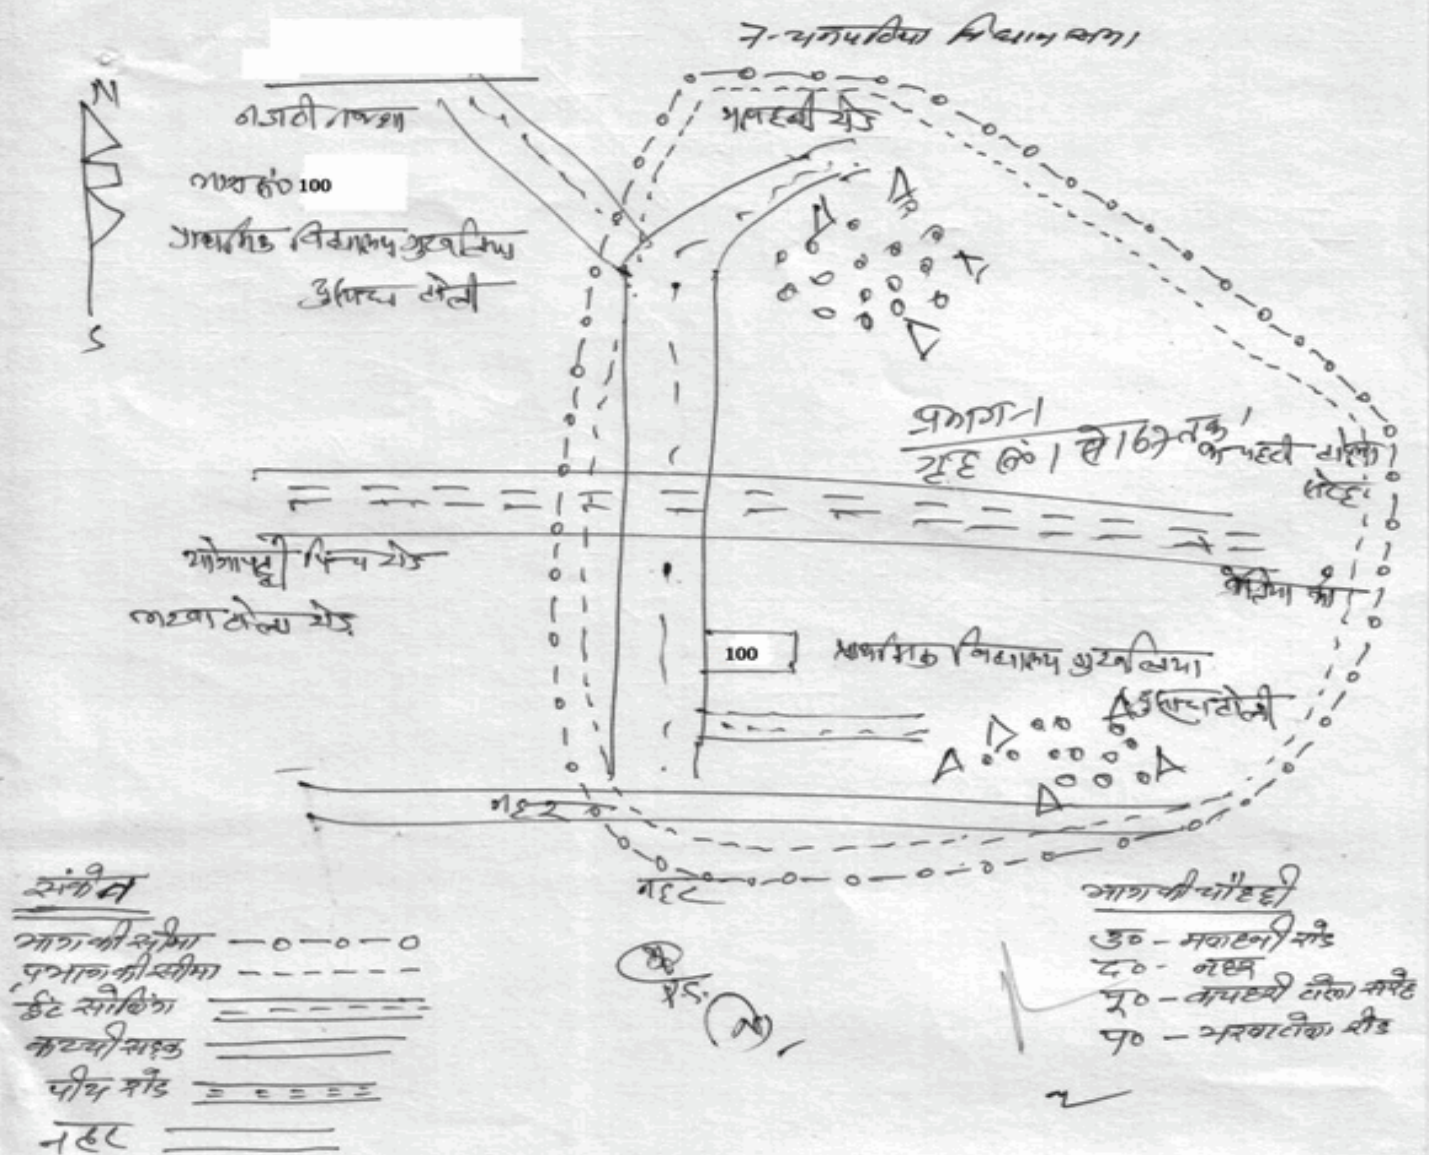 7-चनपटिया विधान सभा
N
नजरी नक्शा
भाग सं० 100
प्राथमिक विद्यालय गुरवलिया
दुसाध टोली
S
रोड
प्रभाग-1
गृह सं० 1 से 167 तक
टोला
सरेह
योगापट्टी पिच रोड
टोला रोड
100
प्राथमिक विद्यालय गुरवलिया
दुसाध टोली
नहर
नहर
संकेत
भाग की सीमा
प्रभाग की सीमा
ईंट सोलिंग
कच्ची सड़क
पीच रोड
नहर
भाग की चौहद्दी
उ० - रोड
द० - नहर
पू० - टोला सरेह
प० - रोड